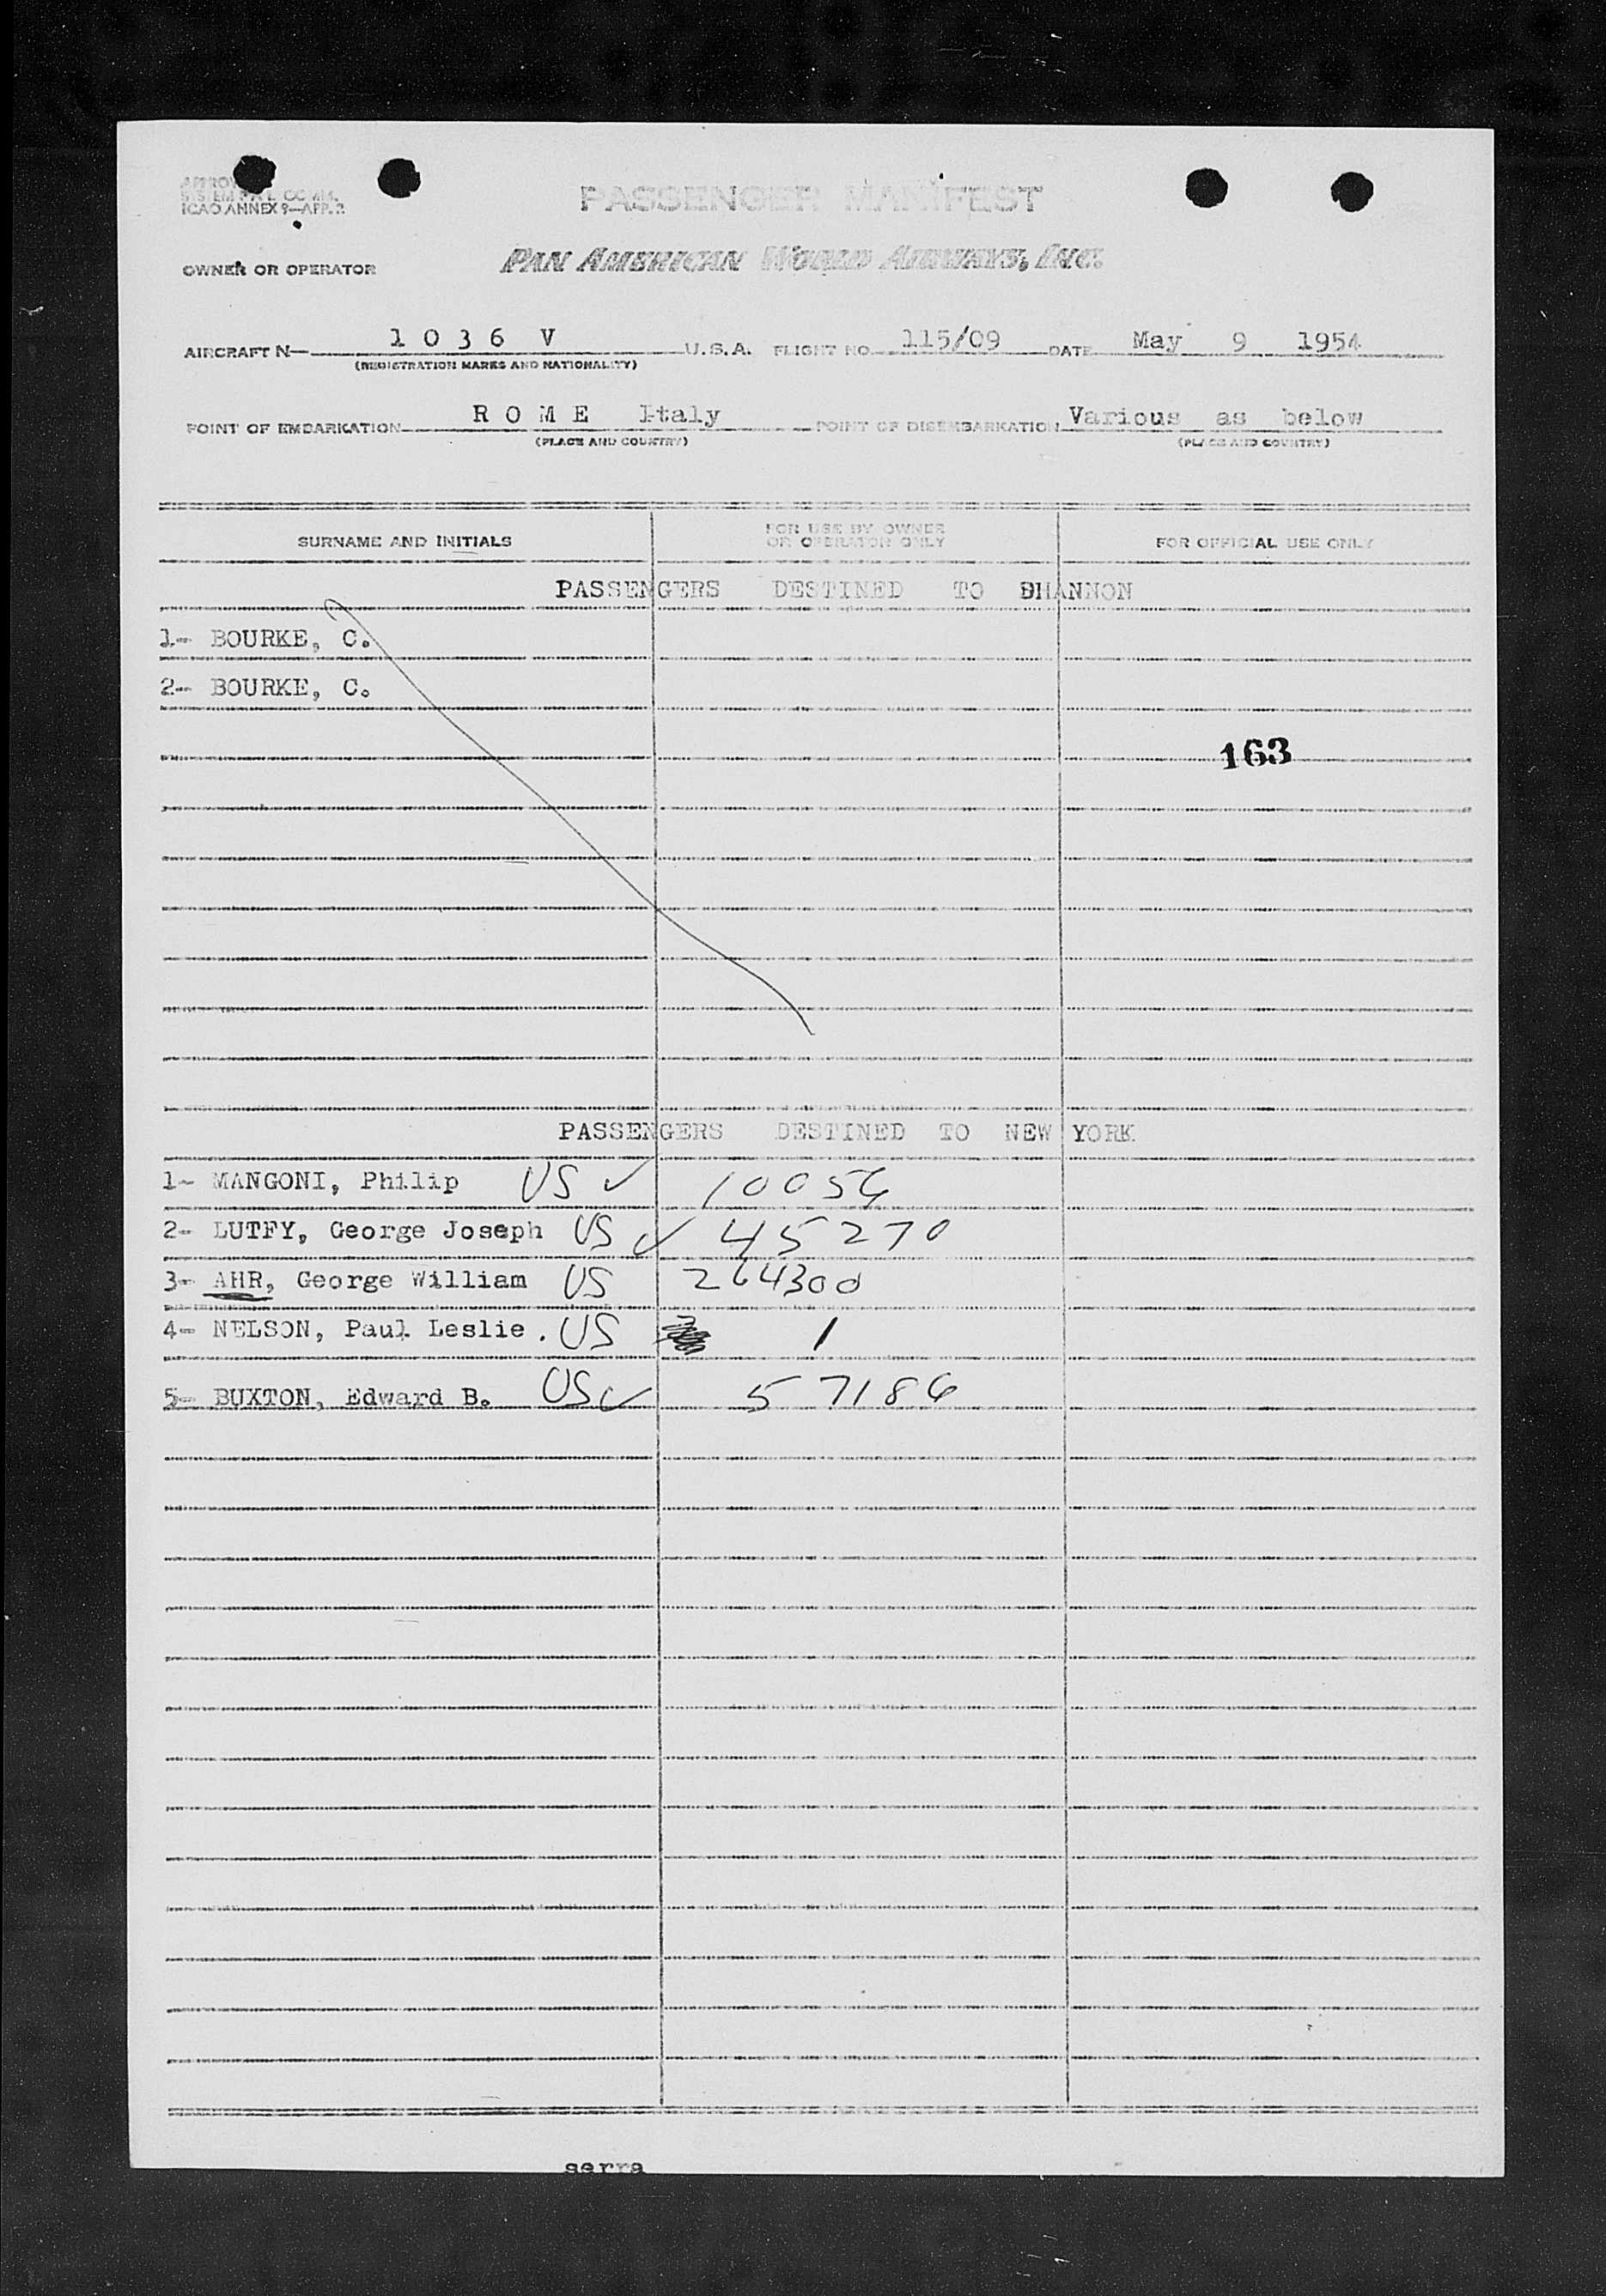 PASSENGER MANIFEST
ICAO ANNEX 9—APP. 2
OWNER OR OPERATOR PAN AMERICAN WORLD AIRWAYS, INC.
AIRCRAFT N— 1 0 3 6 V U.S.A. FLIGHT NO. 115/09 DATE May 9 1954
(REGISTRATION MARKS AND NATIONALITY)
POINT OF EMBARKATION R O M E Italy POINT OF DISEMBARKATION Various as below
(PLACE AND COUNTRY) (PLACE AND COUNTRY)
SURNAME AND INITIALS FOR USE BY OWNER OR OPERATOR ONLY FOR OFFICIAL USE ONLY
PASSENGERS DESTINED TO SHANNON
1- BOURKE, C.
2- BOURKE, C.
163
PASSENGERS DESTINED TO NEW YORK
1- MANGONI, Philip US ✓ 10056
2- LUTFY, George Joseph US ✓ 45270
3- AHR, George William US 264300
4- NELSON, Paul Leslie. US 1
5- BUXTON, Edward B. US ✓ 57186
serra